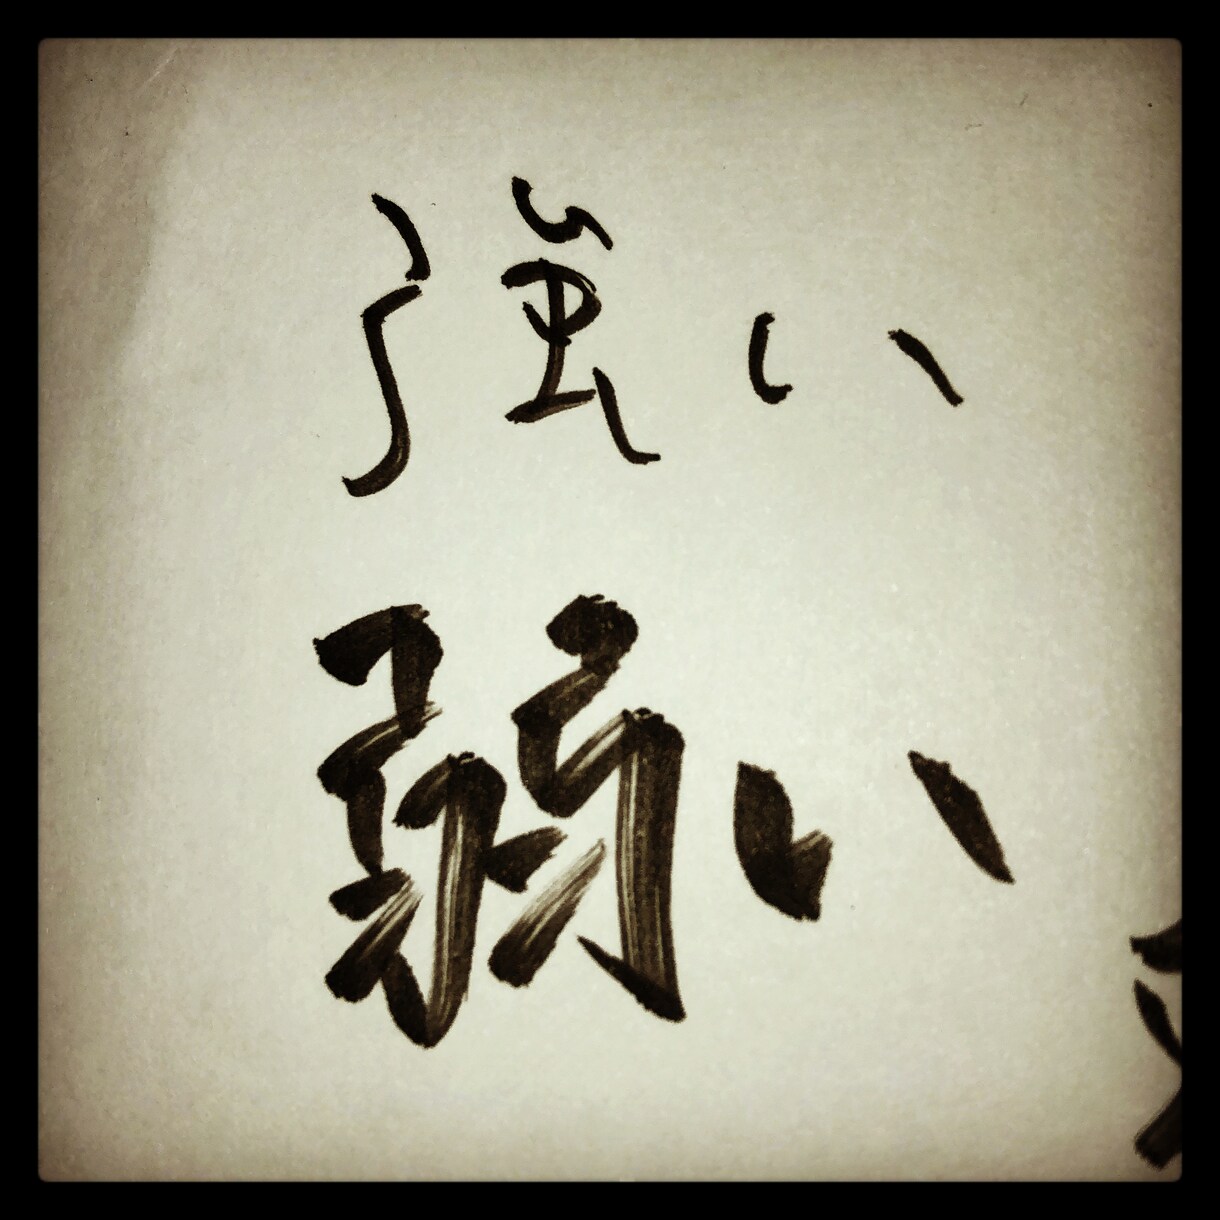 強い
弱い